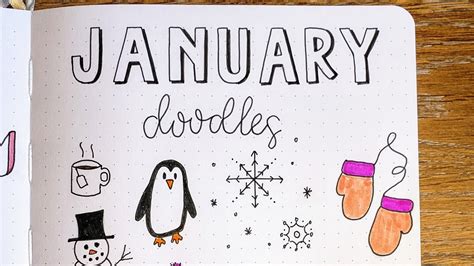 JANUARY
doodles